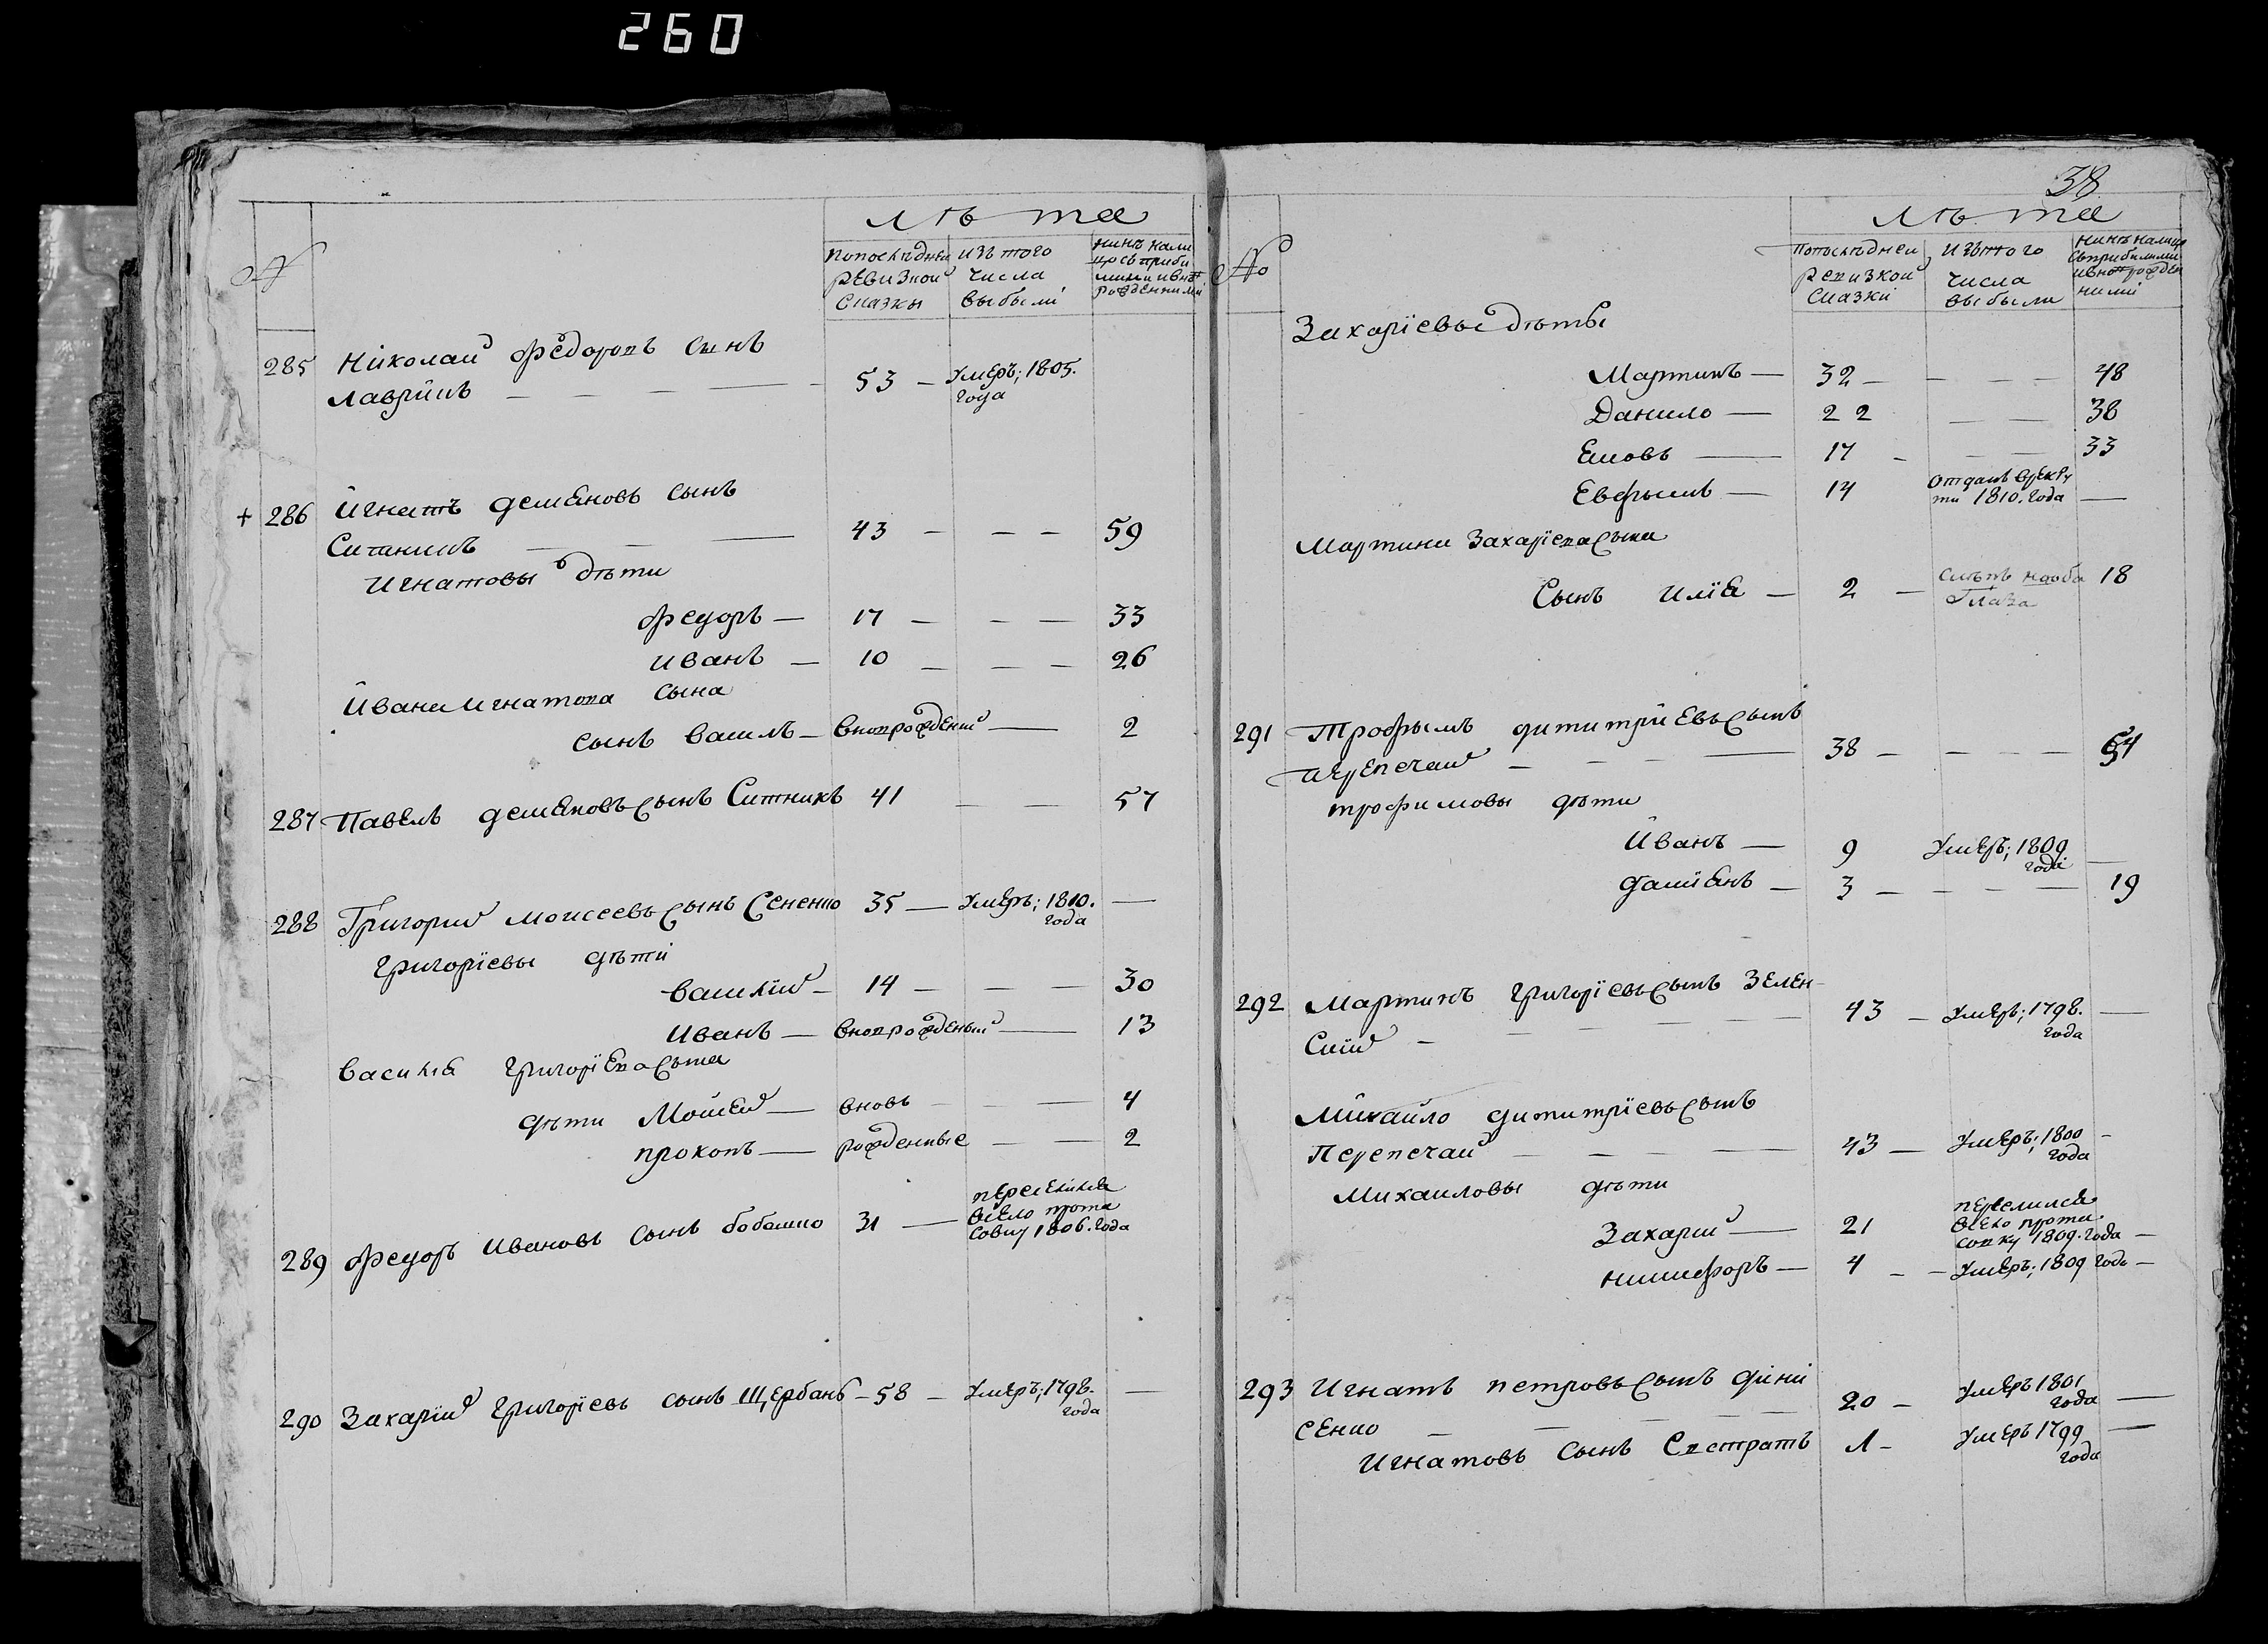 260
Лѣта
№
попослѣдней ревизкой сказки
изъ того числа выбыли
нинѣ налицо съ прибилими и вновъ рожденними
285 Николай Федоровъ сынъ
Лаврикъ — 53 — умеръ; 1805. года
+ 286 Игнатъ Демяновъ сынъ
Ситникъ — 43 — — — 59
Игнатовы дѣти
Федоръ — 17 — — — 33
Иванъ — 10 — — — 26
Ивана Игнатова сына
сынъ Василь — вновърождений — 2
287 Павелъ Демяновъ сынъ Ситникъ 41 — — 57
288 Григорий Моисеевъ сынъ Сененко 35 — умеръ; 1810. года —
Григорїевы дѣти
Василїй — 14 — — — 30
Иванъ — вновърожденый — 13
Василїя Григорїева сына
дѣти Мойсей — вновъ — — 4
Прокопъ — рожденные — — 2
289 Федоръ Ивановъ сынъ Бобошко 31 — переселился в село Прота
совку 1806. года
290 Захарїй Григорїевъ сынъ Щербань — 58 — умеръ; 1798. года —
38
Лѣта
№
попослѣдней ревизкой сказкі
изътого числа выбыли
нинѣ налицо съприбилими ивновърожденнимі
Захарїевы дѣты
Мартинъ — 32 — — — — 48
Данило — 22 — — 38
Яковъ — 17 — — — 33
Евфымъ — 14 отданъ врекру
ти 1810. года —
Мартина Захарїева сына
сынъ Илїя — 2 — слѣпъ на оба глаза 18
291 Трофымъ Дититрїевъ сынъ
Перепечай — — — 38 — — — — 54
Трофимовы дѣти
Иванъ — 9 умеръ; 1809 года —
Дамїянъ — 3 — — — — 19
292 Мартинъ Григорїевъ сынъ Зелен-
скїй — — — 43 — умеръ; 1798. года —
Михайло Дититрїевъ сынъ
Перепечай — — — 43 — умеръ; 1800 года —
Михаиловы дѣти
Захарий — 21 переселился
в село Прота
совку 1809. года —
Никифоръ — 4 — — умеръ; 1809 года —
293 Игнатъ Петровъ сынъ Дени
сенко — — — 20 — умеръ 1801 года —
Игнатовъ сынъ Евстратъ 1 — умеръ 1799 года —